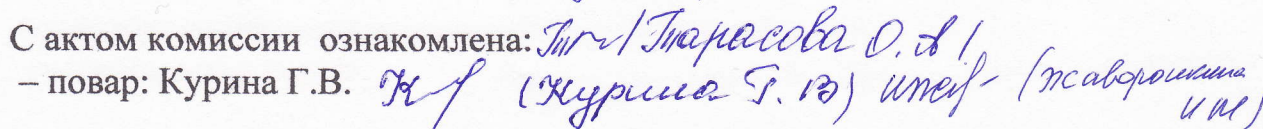 С актом комиссии ознакомлена: /Тарасова О.А/
– повар: Курина Г.В. (Курина Г.В) (Жаворонкина И М)